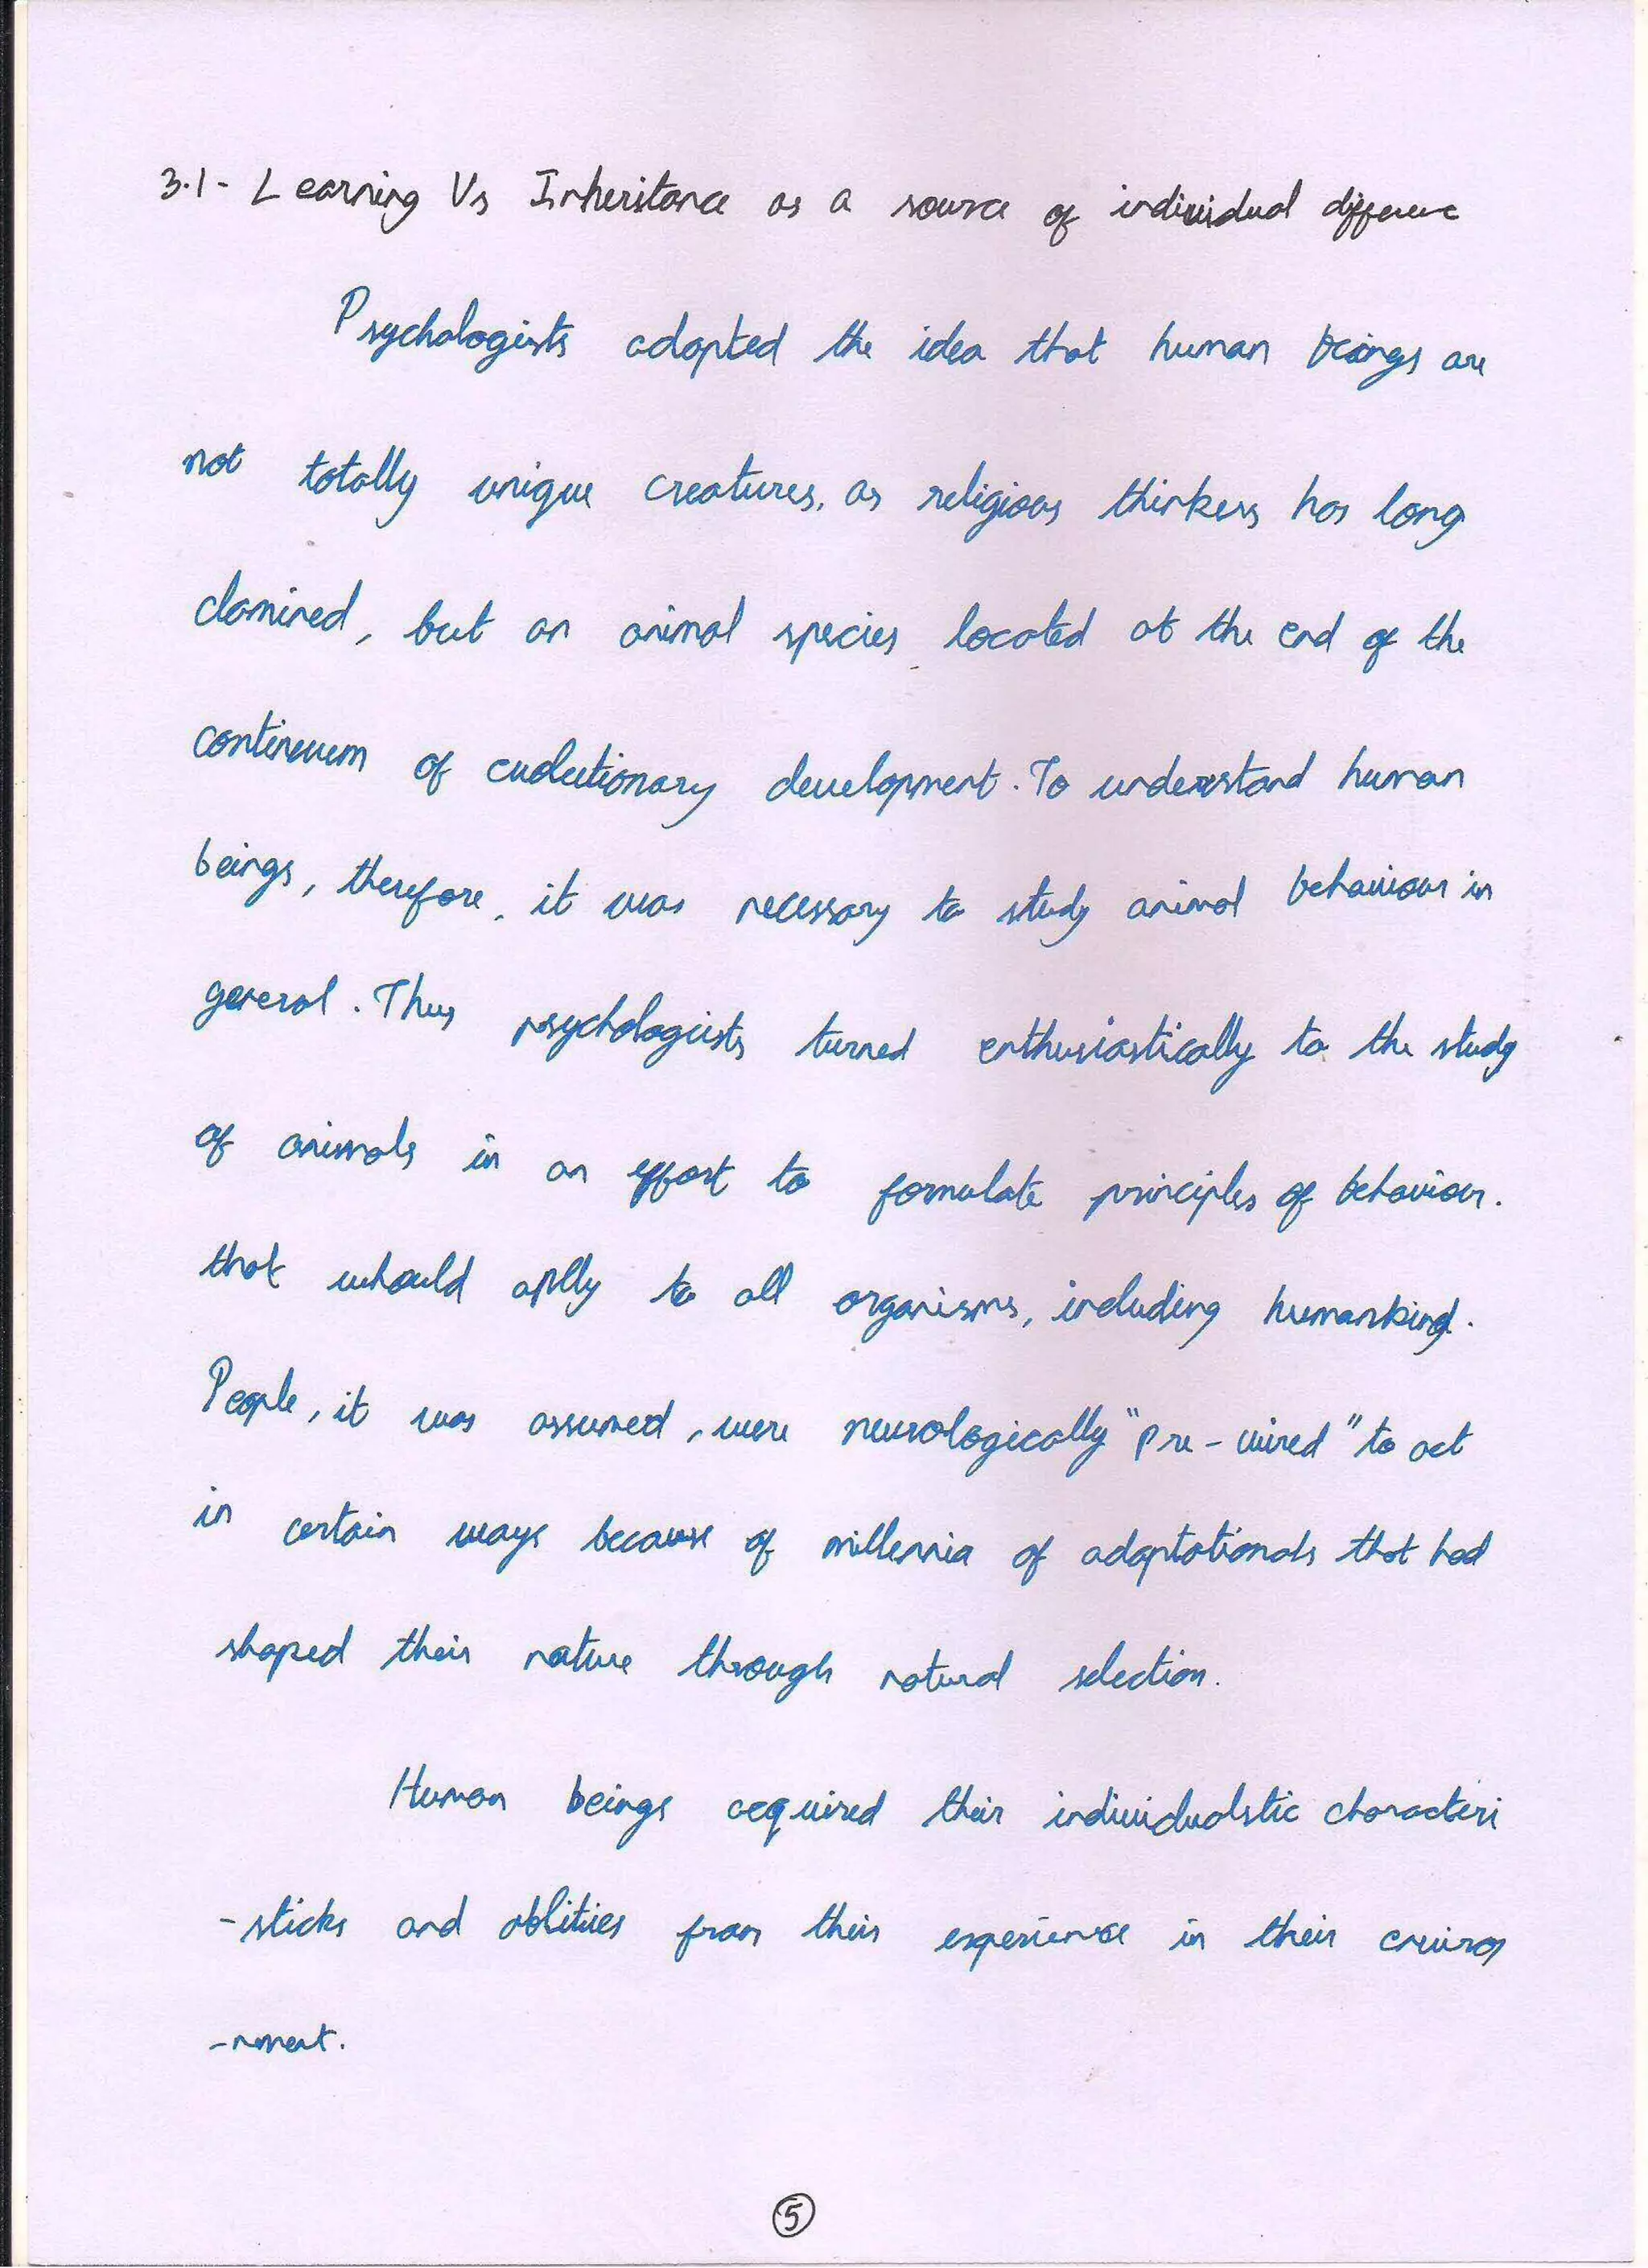 3.1- Learning Vs Inheritance as a source of individual differenc
Psychologists adopted the idea that human beings are
not totally unique creatures, as religious thinkers has long
clamined, but an animal species located at the end of the
continuum of evolutionary development. To understand human
beings, therefore, it was necessary to study animal behaviour in
general. Thus psychologists turned enthusiastically to the study
of animals in an effort to formulate principles of behaviour.
that whould aplly to all organisms, including humankind.
People, it was assumed, were neurologically "pre-wired" to act
in certain ways because of millennia of adaptationals that had
shaped their nature through natural selection.
Human beings acquired their individualstic characteri
-sticks and ablitiies from their experience in their environ
-nment.
5